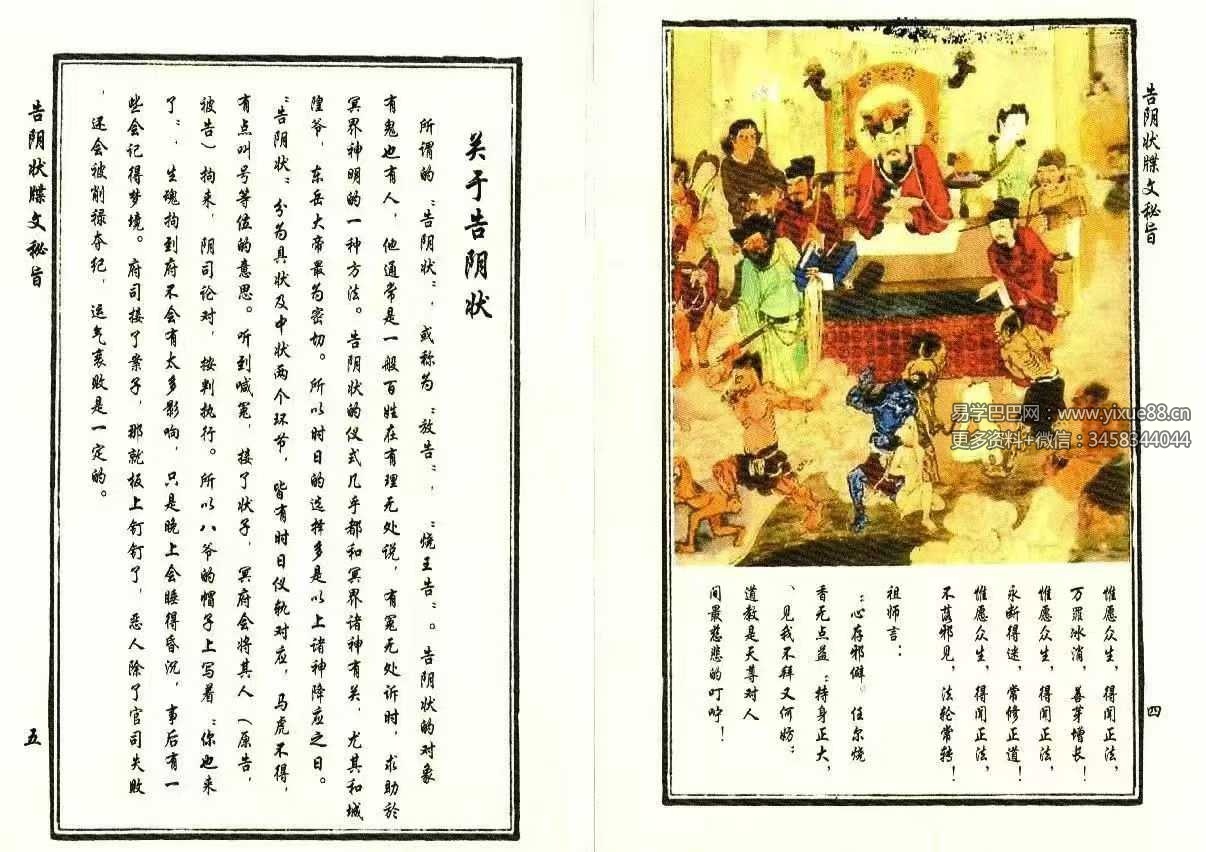 告阴状牒文秘旨
四
易学巴巴网：www.yixue88.cn
更多资料+微信：3458344044
惟愿众生，得闻正法，
万罪冰消，善芽增长！
惟愿众生，得闻正法，
永断得迷，常修正道！
惟愿众生，得闻正法，
不落邪见，法轮常转！
祖师言：
“心存邪僻。任尔烧
香无点益“持身正大，
、见我不拜又何妨：
道教是天尊对人
间最慈悲的叮咛！
关于告阴状
所谓的“告阴状”，或称为“放告”，“烧王告”。告阴状的对象
有鬼也有人，他通常是一般百姓在有理无处说，有冤无处诉时，求助於
冥界神明的一种方法。告阴状的仪式几乎都和冥界诸神有关，尤其和城
隍爷，东岳大帝最为密切。所以时日的选择多是以上诸神降应之日。
“告阴状”分为具状及中状两个环节，皆有时日仪轨对应，马虎不得，
有点叫号等位的意思。听到喊冤，接了状子，冥府会将其人（原告，
被告）拘来，阴司论对，按判执行。所以八爷的帽子上写着“你也来
了”，生魂拘到府不会有太多影响，只是晚上会睡得昏沉，事后有一
些会记得梦境。府司接了案子，那就板上钉钉了，恶人除了官司失败
，还会被削禄夺纪，运气衰败是一定的。
告阴状牒文秘旨
五